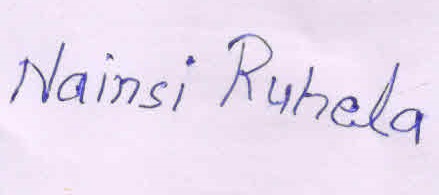 Nainsi Ruhela